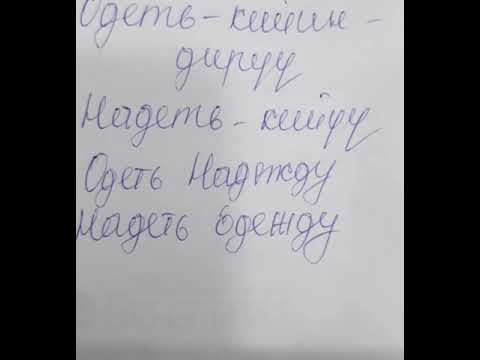 Одеть - кийин -
дируу
Надеть - кийүү
Одеть Надежду
Надеть одежду